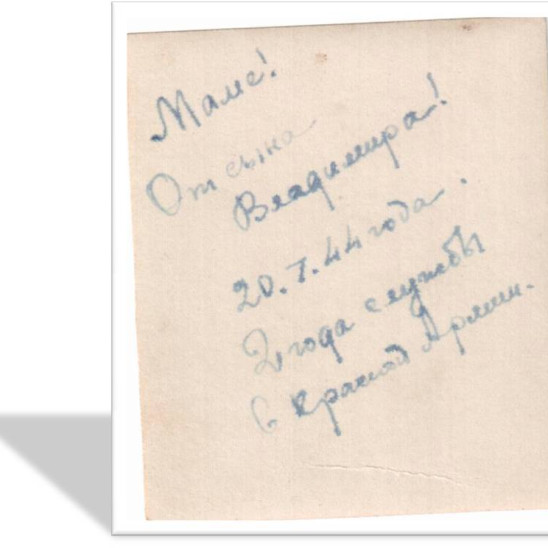 Маме!
От сына
Владимира!
20.I.44 года.
2 года службы
в Красной Армии.